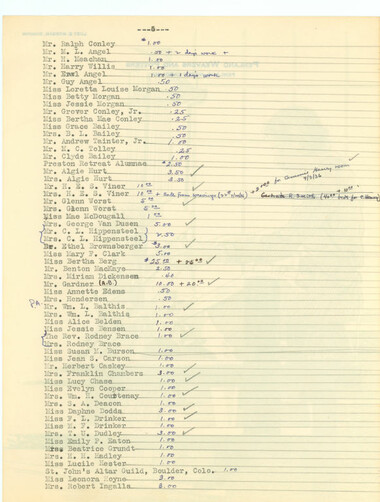 --6--
Mr. Ralph Conley $1.00
Mr. M. L. Angel .50 + 2 days work +
Mr. H. Meachan 1.00
Mr. Harry Willis 1.00
Mr. Angel 1.00 + 1 days work
Mr. Guy Angel .50
Miss Loretta Louise Morgan .50
Miss Betty Morgan .50
Miss Jessie Morgan .50
Mr. Grover Conley, Jr. .25
Miss Bertha Mae Conley .25
Miss Grace Bailey .50
Mrs. R. L. Bailey .50
Mr. Andrew Tainter, Jr. 1.00
Mr. M. C. Tolley .25
Mr. Clyde Bailey 1.00
Preston Retreat Alumnae
Mr. Algie Hurt 2.50
Mrs. Algie Hurt 2.50
Mr. H. E. S. Viner 10.00
Mrs. H. E. S. Viner 10.00
Mr. Glenn Worst 5.00
Mrs. Glenn Worst 5.00
Miss Mae McDougall 1.00
Mrs. George Van Dusen 5.00
Mr. C. L. Hippensteel
Mrs. C. L. Hippensteel 2.50
Dr. Ethel Brownsberger 5.00
Miss Mary F. Clark 5.00
Miss Bertha Berg $25.00 + 25.00
Mr. Benton MacKaye 2.50
Mrs. Miriam Dickensen
Mr. Gardner 10.00 + 20.00
Miss Annette Edens .50
Mrs. Hendersen .50
Mr. Wm. L. Balthis 1.00
Mrs. Wm. L. Balthis 1.00
Miss Alice Belden 1.00
Miss Jessie Benson 1.00
The Rev. Rodney Brace 1.00
Mrs. Rodney Brace
Miss Susan M. Burson 1.00
Miss Jean S. Carson 1.00
Mr. Herbert Caskey 1.00
Mrs. Franklin Chambers 2.00
Miss Lucy Chase 1.00
Miss Evelyn Cooper 1.00
Mrs. Wm. H. Courtenay 1.00
Mrs. S. A. Deacon 1.00
Miss Daphne Dodds 2.00
Miss F. L. Drinker 1.00
Miss M. F. Drinker 1.00
Mrs. T. U. Dudley 2.50
Miss Emily P. Eaton 1.00
Miss Beatrice Grundt 1.00
Mrs. H. H. Hadley 1.00
Miss Lucile Hester 1.00
St. John's Altar Guild, Boulder, Colo. 1.00
Miss Leonora Hoyne 2.00
Mrs. Robert Ingalls 2.00